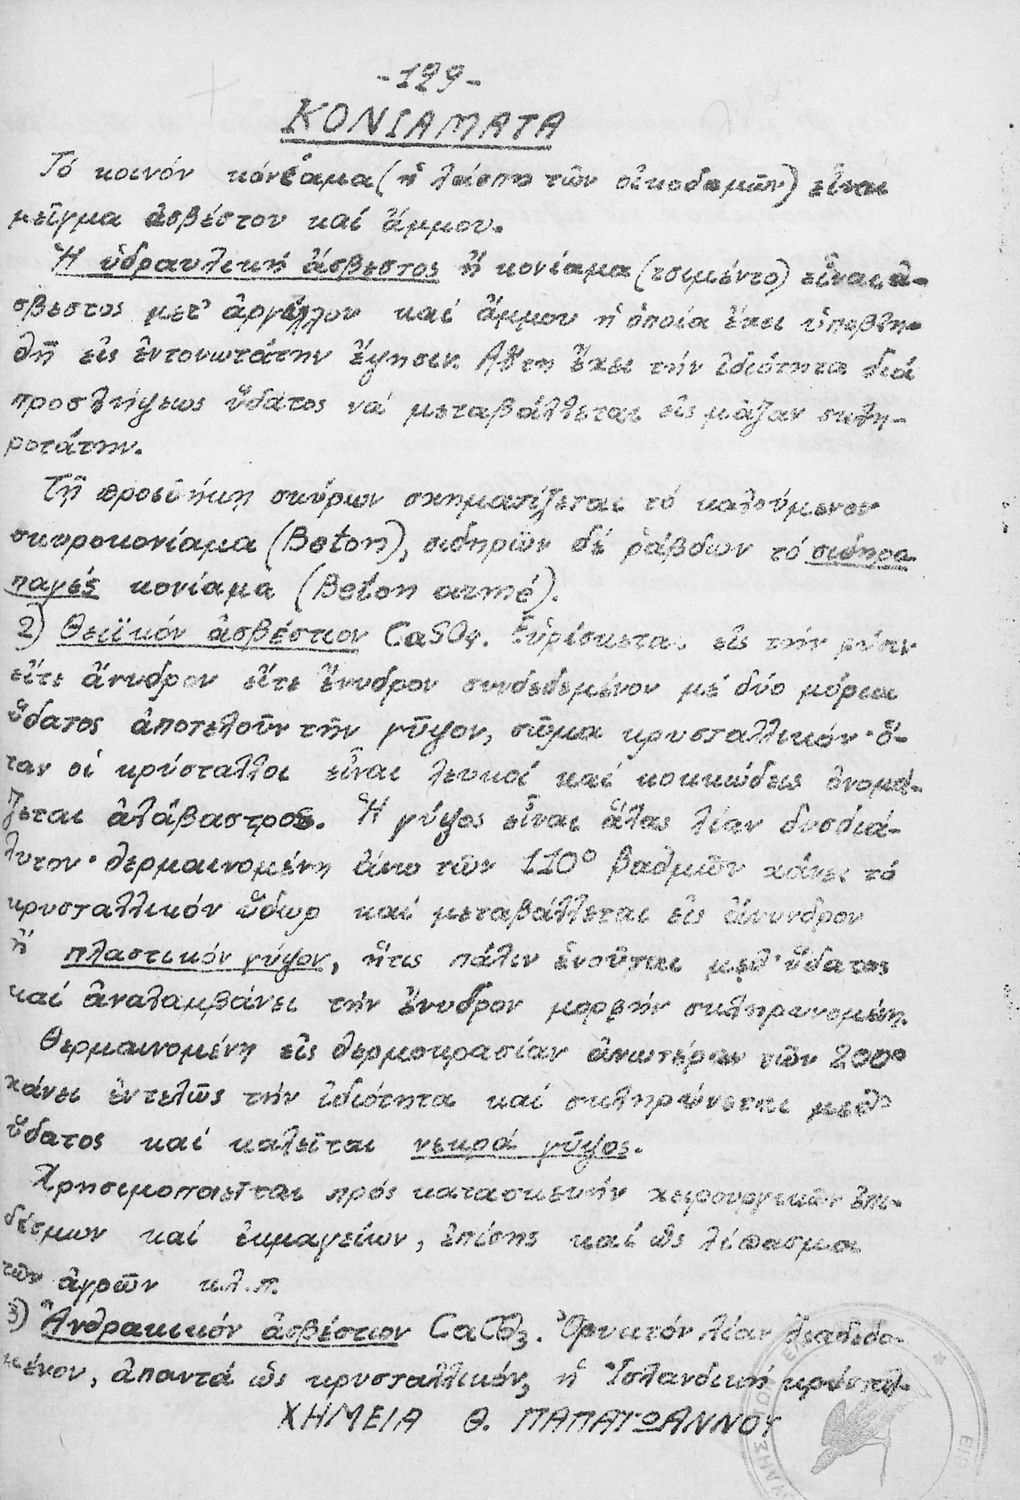 -129-
ΚΟΝΙΑΜΑΤΑ
Τό κοινόν κονίαμα (ἡ λάσπη τῶν οἰκοδομῶν) εἶναι
μεῖγμα ἀσβέστου καί ἄμμου.
Ἡ ὑδραυλική ἄσβεστος ἤ κονίαμα (τσιμέντο) εἶναι ἄ-
σβεστος μετ' ἀργίλλου καί ἄμμου ἡ ὁποία ἔχει ὑποβλη-
θῆ εἰς ἐντονωτάτην ἔψησιν. Αὕτη ἔχει τήν ἰδιότητα διά
προσλήψεως ὕδατος νά μεταβάλλεται εἰς μᾶζαν σκλη-
ροτάτην.
Τῇ προσθήκῃ σκύρων σχηματίζεται τό καλούμενον
σκυροκονίαμα (Beton), σιδηρῶν δέ ράβδων τό σιδηρο
παγές κονίαμα (Beton armé).
2) Θειϊκόν ἀσβέστιον CaSO₄. Εὑρίσκεται εἰς τήν φύσιν
εἴτε ἄνυδρον εἴτε ἔνυδρον συνδεδεμένον μέ δύο μόρια
ὕδατος ἀποτελοῦν τήν γῦψον, σῶμα κρυσταλλικόν· ὅ-
ταν οἱ κρύσταλλοι εἶναι λευκοί καί κοκκώδεις ὀνομά-
ζεται ἀλάβαστρος. Ἡ γύψος εἶναι ἅλας λίαν δυσδιά-
λυτον· θερμαινομένη ἄνω τῶν 110° βαθμῶν χάνει τό
κρυσταλλικόν ὕδωρ καί μεταβάλλεται εἰς ἄνυνδρον
ἤ πλαστικόν γύψον, ἥτις πάλιν ἑνοῦται μεθ' ὕδατος
καί ἀναλαμβάνει τήν ἔνυδρον μορφήν σκληρυνομένη.
Θερμαινομένη εἰς θερμοκρασίαν ἀνωτέραν τῶν 200°
χάνει ἐντελῶς τήν ἰδιότητα καί σκληρύνεται μεθ'
ὕδατος καί καλεῖται νεκρά γῦψος.
Χρησιμοποιεῖται πρός κατασκευήν χειρουργικῶν ἐπι-
δέσμων καί ἐκμαγείων, ἐπίσης καί ὡς λίπασμα
τῶν ἀγρῶν κ.λ.π.
3) Ἀνθρακικόν ἀσβέστιον CaCO₃. Ὀρυκτόν λίαν διαδεδο-
μένον, ἀπαντᾶ ὡς κρυσταλλικόν, ἡ Ἰσλανδική κρύσταλ-
ΧΗΜΕΙΑ Θ. ΠΑΠΑΓΙΩΑΝΝΟΥ